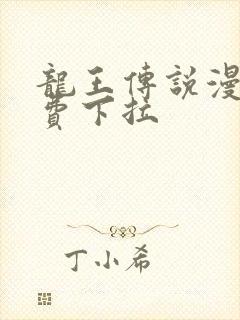 龍王傳說漫
費下拉
丁小希